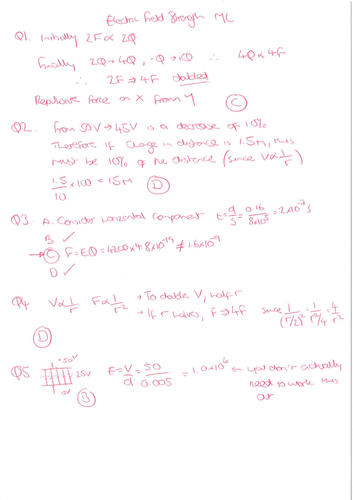 Electric Field Strength MC
Q1. Initially 2F ∝ 2Q
Finally 2Q → 4Q, -Q → 1Q ∴ 4Q ∝ 4F
∴ 2F → 4F doubled
Repulsive force on X from Y (C)
Q2. From 50V → 45V is a decrease of 10%
Therefore if change in distance is 1.5m, this
must be 10% of the distance (since V ∝ 1/r)
1.5/10 × 100 = 15m (D)
Q3 A. Consider horizontal component t = d/s = 0.16/8×10⁵ = 2×10⁻⁷ s
B ✓
→ (C) F = EQ = 4200 × 4.8×10⁻¹⁹ ≠ 1.6×10⁻⁹
D ✓
Q4 V ∝ 1/r F ∝ 1/r² → To double V, half r
→ If r halves, F → 4F since 1/(r/2)² = 1/r²/4 = 4/r²
(D)
Q5 +50V 25V 0V E = V/d = 50/0.005 = 1.0×10⁶ ← you don't actually
need to work this
out
(B)